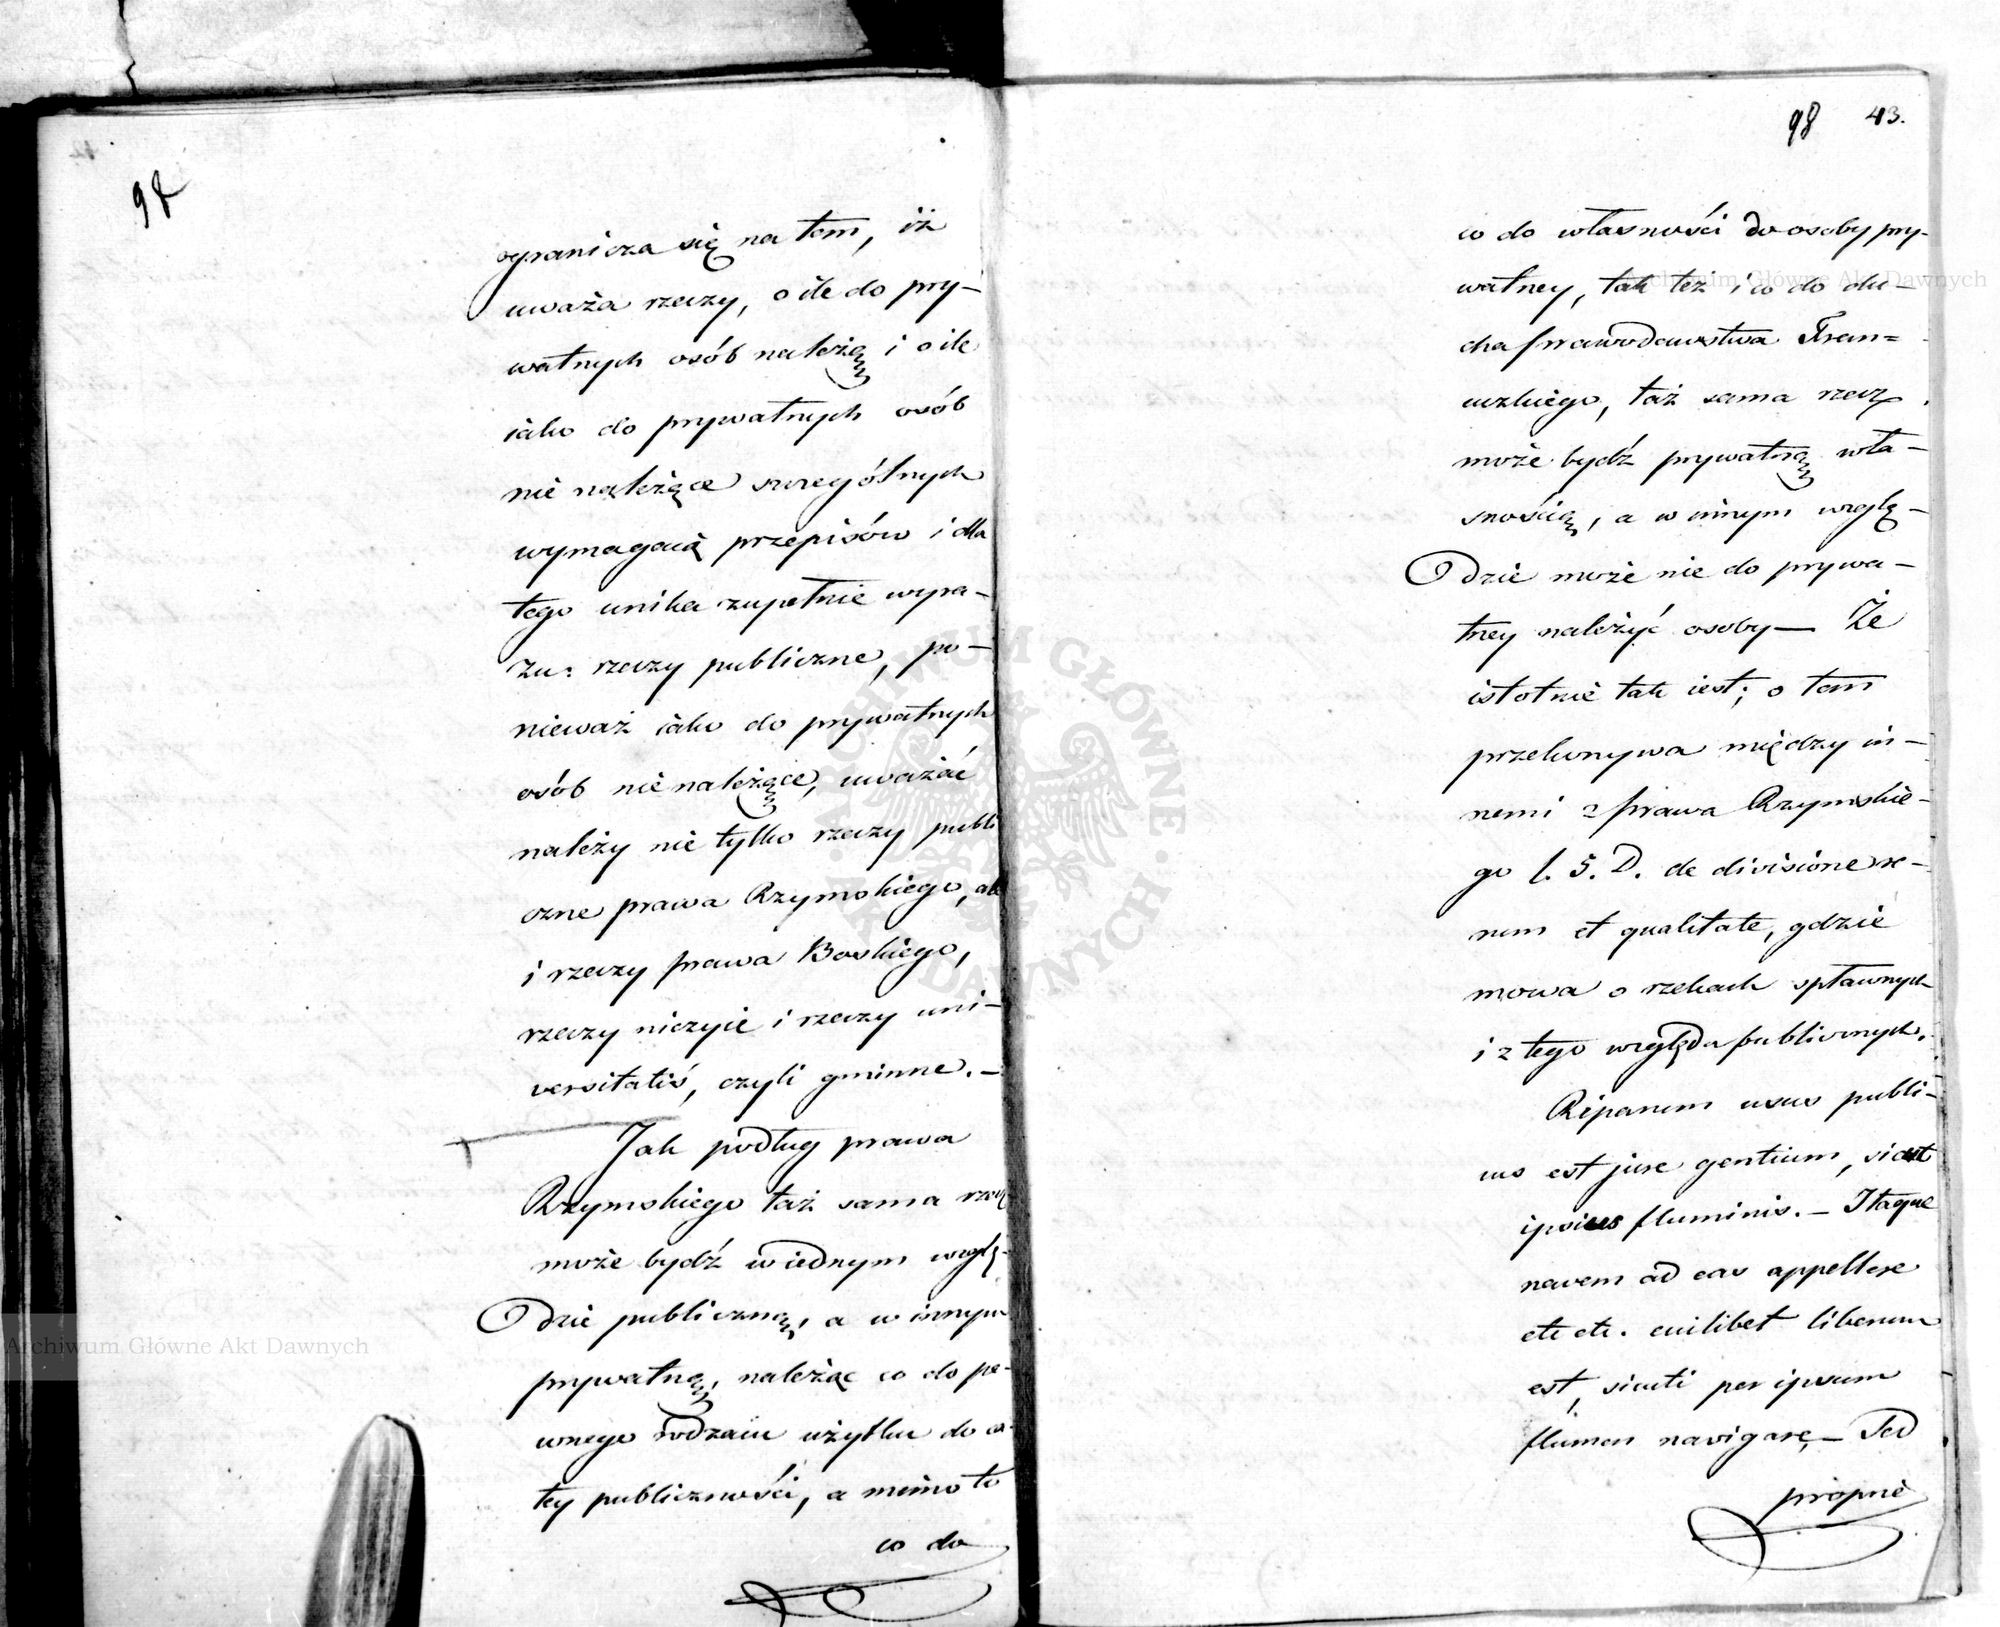 98
ogranicza się na tem, iż
uważa rzeczy, o ile do pry-
watnych osób należą i o ile
iako do prywatnych osób
nie należące szczególnych
wymagaią przepisów i dla
tego unika zupełnie wyra-
zu: rzeczy publiczne, po-
nieważ iako do prywatnych
osób nie należące, uważać
należy nie tylko rzeczy publi
czne prawa Rzymskiego, ale
i rzeczy prawa Boskiego,
rzeczy niczyie i rzeczy uni-
versitatis, czyli gminne. -
Jak podług prawa
Rzymskiego taż sama rzecz
może bydź w iednym wzglę-
dzie publiczną, a w innym
prywatną, należąc co do pe-
wnego rodzaiu użytku do ca-
łey publiczności, a mimo to
co do
98 43.
co do własności do osoby pry-
watney, tak też i co do du-
cha prawodawstwa Fran=
cuzkiego, taż sama rzecz
może bydź prywatną wła-
snością, a w innym wzglę-
dzie może nie do prywa-
tney należyć osoby — Że
istotnie tak iest; o tem
przekonywa między in-
nemi z prawa Rzymskie-
go l. 5. D. de divisione re-
rum et qualitate, gdzie
mowa o rzekach spławnych
i z tego względu publicznych.
Riparum usus publi-
cus est jure gentium, sicut
ipsius fluminis. - Itaque
navem ad eas appellere
etc etc. cuilibet liberum
est, sicuti per ipsum
flumen navigare, - Sed
proprie
Archiwum Główne Akt Dawnych
Archiwum Główne Akt Dawnych
ARCHIWUM GŁÓWNE AKT DAWNYCH